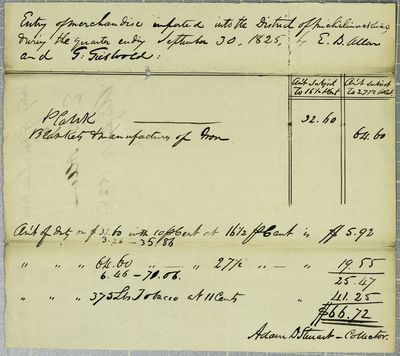 Entry of merchandise imported into the District of Michilimackinac
during the quarter ending September 30, 1825, by E. B. Allen
and G. Griswold:
Amt Subject Amt Subject
to 16½ PCent to 27½ PCent
32.60
Blankets & manufactures of Iron 64.60
Amt of duty on $32.60 with 10 PCent at 16½ PCent is $5.92
3.26 – 35.86
" " " 64.60 " – " 27½ " – " 19.55
6.46 – 71.06. 25.47
" " " 375 Lbs Tobacco at 11 Cents " 41.25
$66.72
Adam D Steuart – Collector.